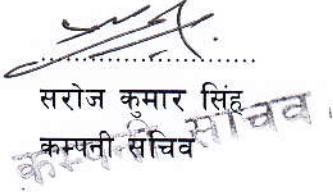 सरोज कुमार सिंह
कम्पनी सचिव
कम्पनी सचिव